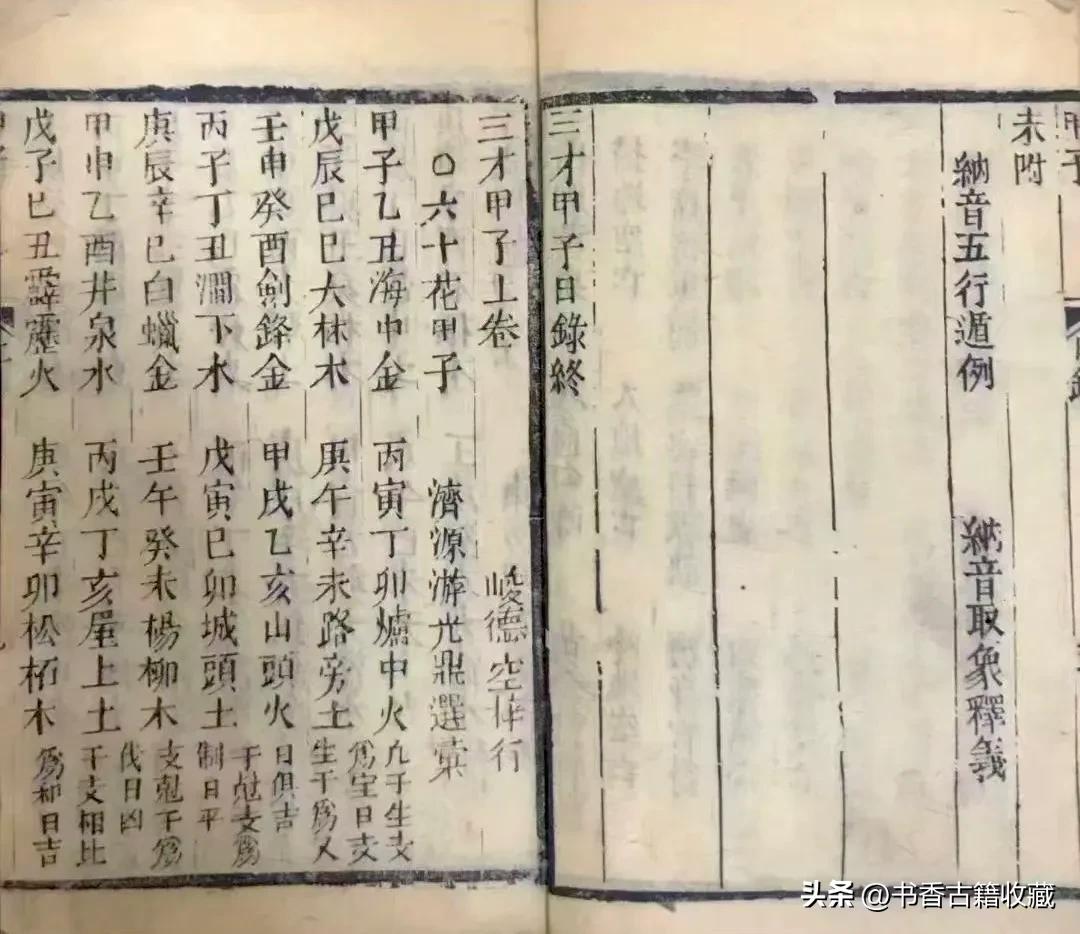 甲子
未附
納音五行遁例 納音取象釋義
三才甲子目錄終
三才甲子上卷
〇六十花甲子 濟源游光鼎選
甲子乙丑海中金 丙寅丁卯爐中火 凡干生支
為宝日支
戊辰己巳大林木 庚午辛未路旁土 生干為义
日俱吉
壬申癸酉劍鋒金 甲戌乙亥山頭火 干尅支為
制日平
丙子丁丑澗下水 戊寅己卯城頭土 支尅干為
伐日凶
庚辰辛巳白蠟金 壬午癸未楊柳木
甲申乙酉井泉水 丙戌丁亥屋上土 干支相比
戊子己丑霹靂火 庚寅辛卯松柏木 為和日吉
头条 @书香古籍收藏